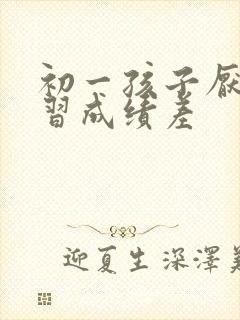 初一孩子厌
习成绩差
迎夏生深澤